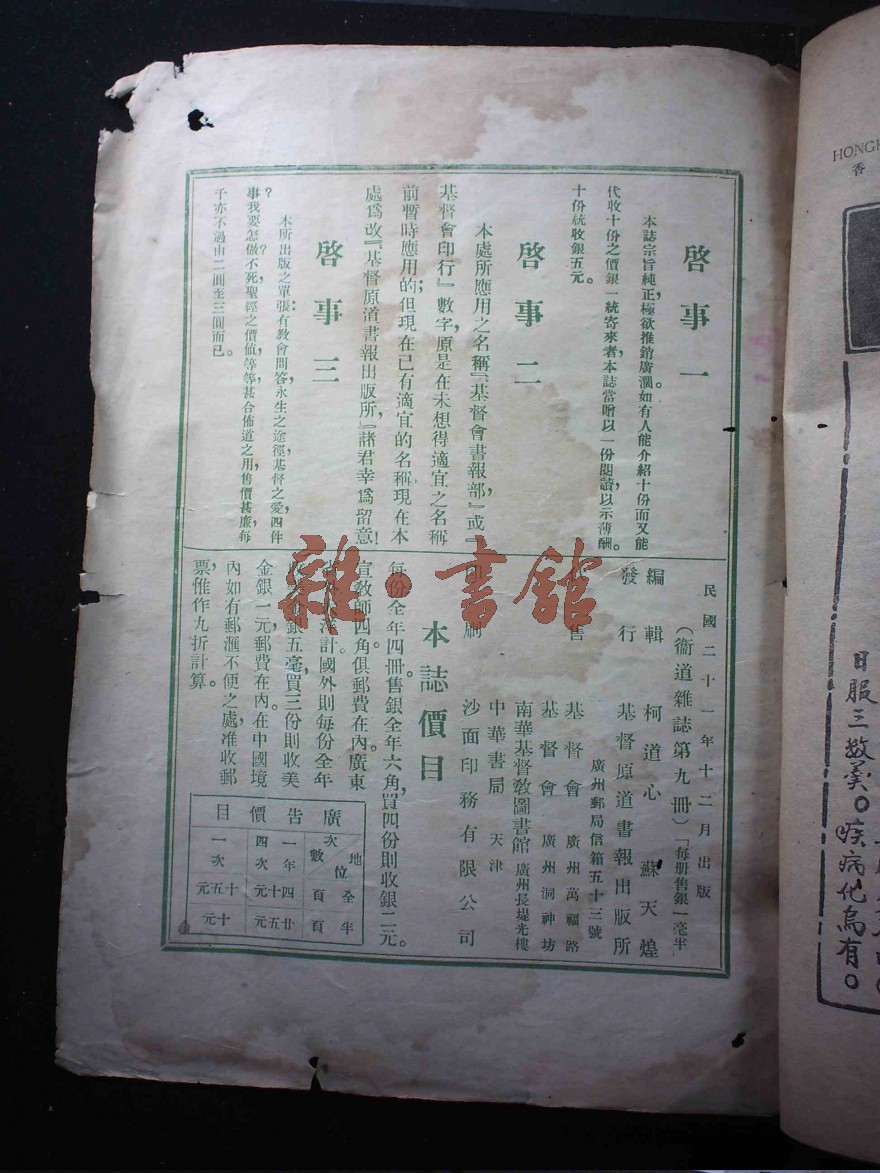 啓事一
本誌宗旨純正，極欲推銷廣濶。如有人能介紹十份而又能
代收十份之價銀一統寄來者，本誌當贈以一份閱讀，以示薄酬。
十份統收銀五元。
啓事二
本處所應用之名稱『基督會書報部』或『
基督會印行』數字，原是在未想得適宜之名稱
前暫時應用的；但現在已有適宜的名稱現在本
處爲改『基督原道書報出版所，』諸君幸爲留意！
啓事三
本所出版之單張：有教會問答，永生之途徑，基督之愛，四件
事我要怎做？不死，聖經之價値，等等，甚合佈道之用，售價甚廉，每
？
千亦不過由二圓至三圓而已。
民國二十一年十二月出版
（衞道雜誌第九冊）「每册售銀一毫半
編輯 柯道心 蘇天煌
發行 基督原道書報出版所
廣州郵局信箱五十三號
售 基督會 廣州萬福路
基督會 廣州洞神坊
南華基督教圖書館 廣州長堤光樓
中華書局 天津
刷 沙面印務有限公司
本誌價目
每份全年四冊售銀全年六角，買四份則收銀二元。
宣教師四角俱郵費在內。廣東
計國外則每份全年
銀五毫，買三份則收美
金銀一元，郵費在內。在中國境
內如有郵滙不便之處，准收郵
票，惟作九折計算。
廣告價目
地位 次數 全頁 半頁
一年四次 四十元 廿五元
一次 十五元 十元
雜·書館
HONG
香
日服三敨羹。疾病化烏有。